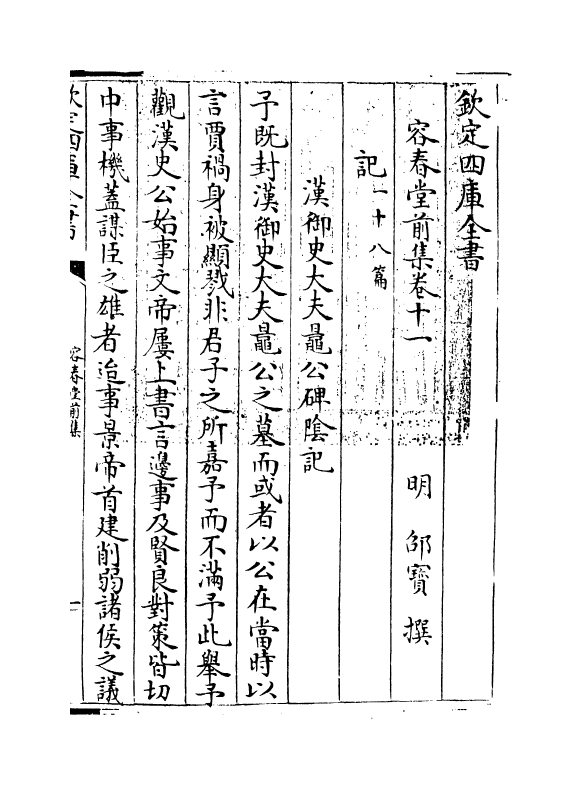 欽定四庫全書
容春堂前集卷十一
明 邵寶 撰
記一十八篇
漢御史大夫鼂公碑陰記
予既封漢御史大夫鼂公之墓而或者以公在當時以
言賈禍身被顯戮非君子之所嘉予而不滿予此舉予
觀漢史公始事文帝屢上書言邊事及賢良對策皆切
中事機蓋謀臣之雄者迨事景帝首建削弱諸侯之議
欽定四庫全書
容春堂前集
一